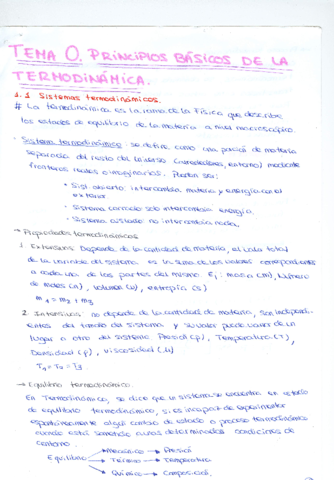 TEMA 0. PRINCIPIOS BÁSICOS DE LA
TERMODINÁMICA.
1.1 Sistemas termodinámicos.
# La termodinámica es la rama de la Física que describe
los estados de equilibrio de la materia a nivel macroscópico.
· Sistema termodinámico: se define como una porción de materia
separada del resto del universo (alrededores, entorno) mediante
fronteras reales o imaginarias. Pueden ser:
• Sist abierto: intercambia materia y energía con el
exterior
• Sistema cerrado solo intercambia energía.
• Sistema aislado no intercambia nada.
→ Propiedades termodinámicas
1. Extensivas Depende de la cantidad de materia, el valor total
de la variable del sistema es la suma de los valores correspondientes
a cada una de las partes del mismo. Ej: masa (m), Número
de moles (n), volumen (v), entropía (s)
2. Intensivas no depende de la cantidad de materia, son independi-
entes del tamaño del sistema y su valor puede variar de un
lugar a otro del sistema. Presión (p), Temperatura (T),
Densidad (ρ), viscosidad (μ)
→ Equilibrio termodinámico.
En Termodinámica, se dice que un sistema se encuentra en estado
de equilibrio termodinámico, si es incapaz de experimentar
espontáneamente algún cambio de estado o proceso termodinámico
cuando está sometido a unas determinadas condiciones de
contorno.
Equilibrio → Mecánico → Presión
→ Térmico → Temperatura
→ Químico → Composición.